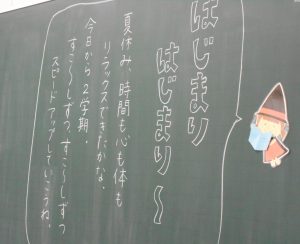 はじまり
はじまり～
夏休み、時間も心も体も
リラックスできたかな。
今日から2学期。
すこ～しずつ、すこ～しずつ
スピードアップしていこうね。